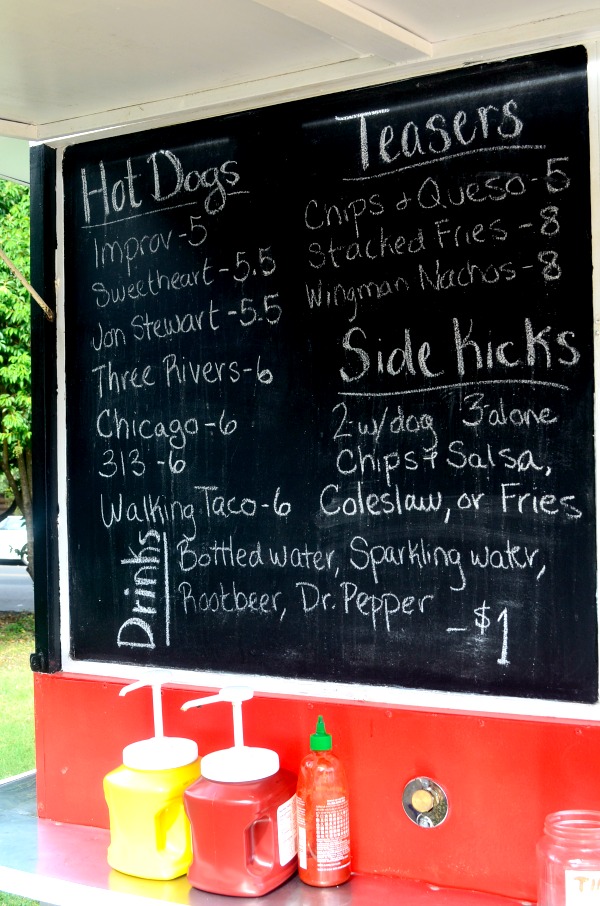 Hot Dogs
Improv-5
Sweetheart-5.5
Jon Stewart-5.5
Three Rivers-6
Chicago-6
313-6
Walking Taco-6
Teasers
Chips & Queso-5
Stacked Fries-8
Wingman Nachos-8
Side Kicks
2 w/dog 3 alone
Chips + Salsa,
Coleslaw, or Fries
Drinks
Bottled water, Sparkling water,
Rootbeer, Dr. Pepper
-$1